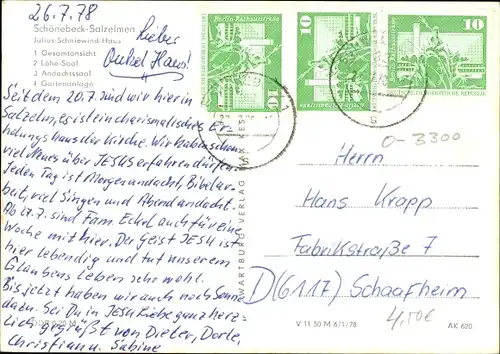 26.7.78
Schönebeck-Salzelmen
Julius-Schniewind-Haus
1 Gesamtansicht
2 Löhe-Saal
3 Andachtssaal
4 Gartenanlage
Lieber
Onkel Hans!
Seit dem 20.7. sind wir hier in
Salzelm, es ist ein charismatisches Er-
holungshaus der Kirche. Wir haben schon
viel Neues über JESUS erfahren dürfen.
Jeden Tag ist Morgenandacht, Bibelar-
beit, viel Singen und Abendandacht.
Ab 27.7. sind Fam. Eckel auch für eine
Woche mit hier. Der Geist JESU ist
hier lebendig und tut unserem
Glaubens Leben sehr wohl.
Bis jetzt haben wir auch noch Sonne
dazu. Sei Du in JESU Liebe ganz herz-
lich gegrüßt von Dieter, Dorle,
Christiane, Sabine
WARTBURG VERLAG MAX KESS
Berlin-Rathausstraße
10
10
10
DEUTSCHE DEMOKRATISCHE REPUBLIK
O-3300
Herrn
Hans Krapp
Fabrikstraße 7
D(6117) Schaafheim
4,50€
V 11 50 M 6/1/78
AK 620